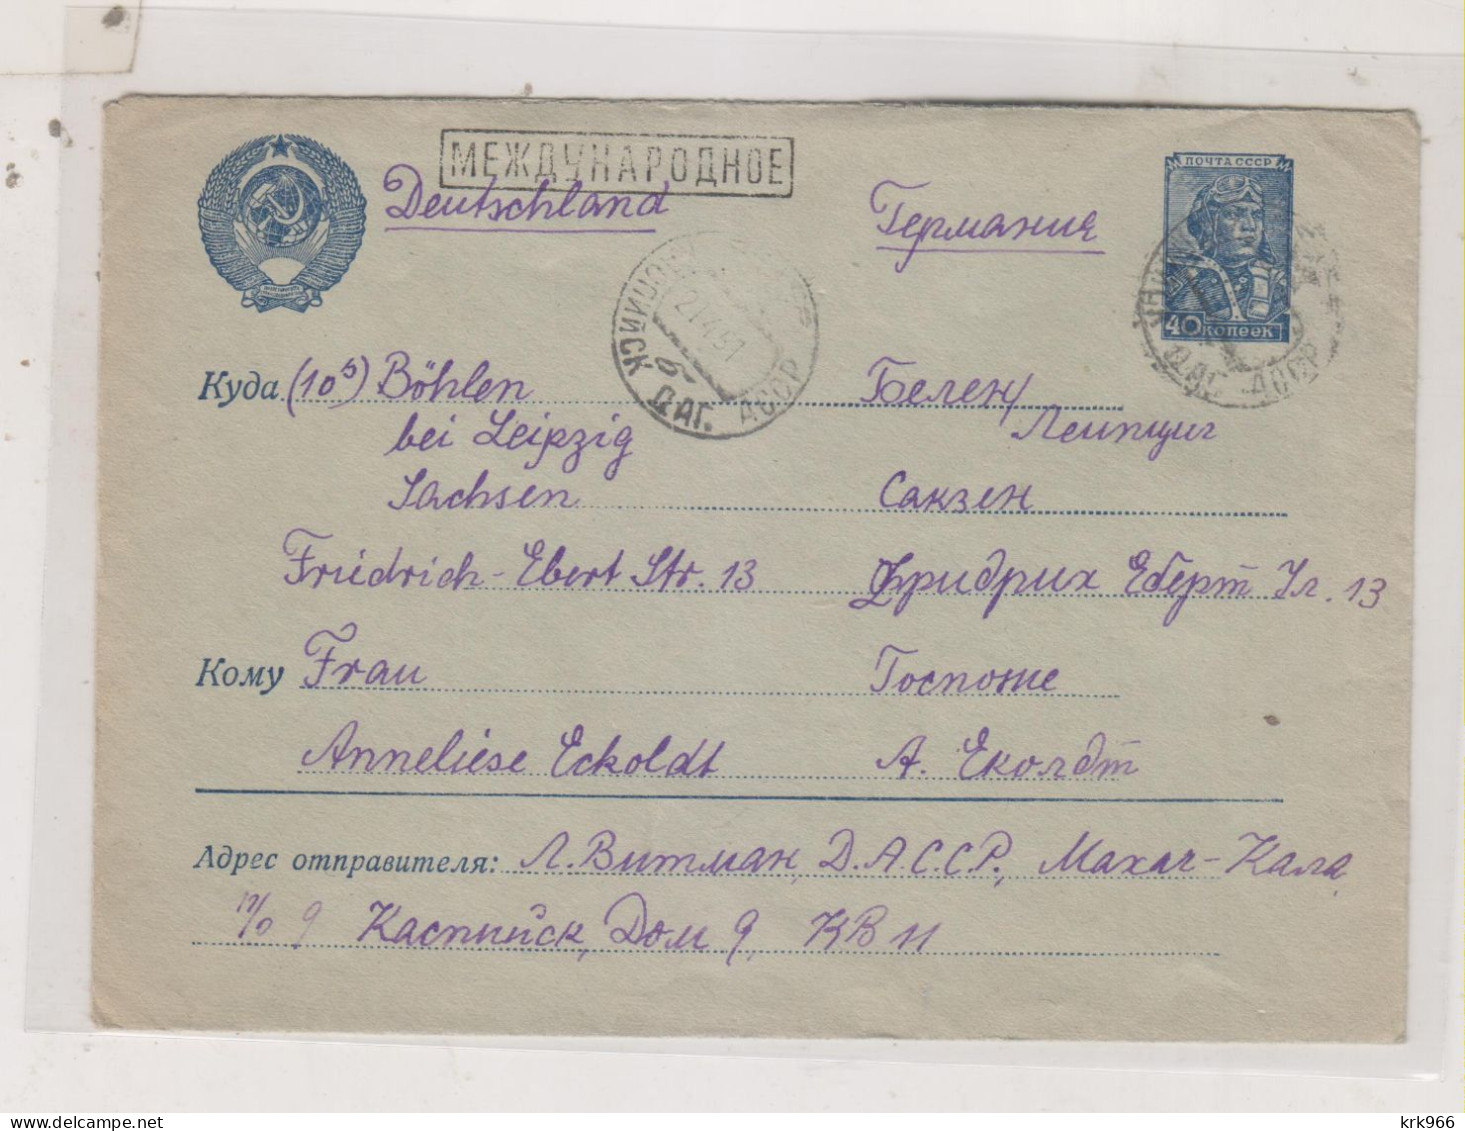 МЕЖДУНАРОДНОЕ
Deutschland Германия
ПОЧТА СССР
40 КОПЕЕК
21 4 51
б
ДАГ. АССР
ДАГ. АССР
Куда (10ᵇ) Böhlen Белен/
bei Leipzig Леипциг
Sachsen Сакзен
Friedrich-Ebert Str. 13 Фридрих Еберт Ул. 13
Кому Frau Госпоже
Anneliese Eckoldt А. Еколдт
Адрес отправителя: Л. Витман, Д.А.С.С.Р., Махач-Кала
п/о 9 Каспийск, Дом 9, КВ 11
krk966